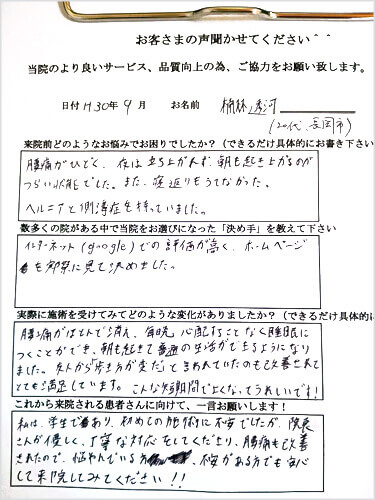 お客さまの声聞かせてください^^
当院のより良いサービス、品質向上の為、ご協力をお願い致します。
日付 H30年 9月 お名前
(20代、長岡市)
来院前どのようなお悩みでお困りでしたか?(できるだけ具体的にお書き下さい
腰痛がひどく、夜は立ち上がれず、朝も起き上がるのが
つらい状態でした。また、寝返りもうてなかった。
ヘルニアと側湾症を持っていました。
数多くの院がある中で当院をお選びになった「決め手」を教えて下さい
インターネット(google)での評価が高く、ホームページ
を実際に見て決めました。
実際に施術を受けてみてどのような変化がありましたか?(できるだけ具体的に
腰痛がほとんど消え、毎晩心配することなく睡眠に
つくことができ、朝も起きて普通の生活ができるようになり
ました。友人から「歩き方が変だ」と言われていたのも改善されて
とても満足しています。こんな短期間で良くなってうれしいです!
これから来院される患者さんに向けて、一言お願いします!
私は、学生であり、初めての施術に不安でしたが、院長
さんが優しく、丁寧な対応をしてくださり、腰痛も改善
されたので、悩やんでいる方、不安がある方でも安心
して来院してみてください!!